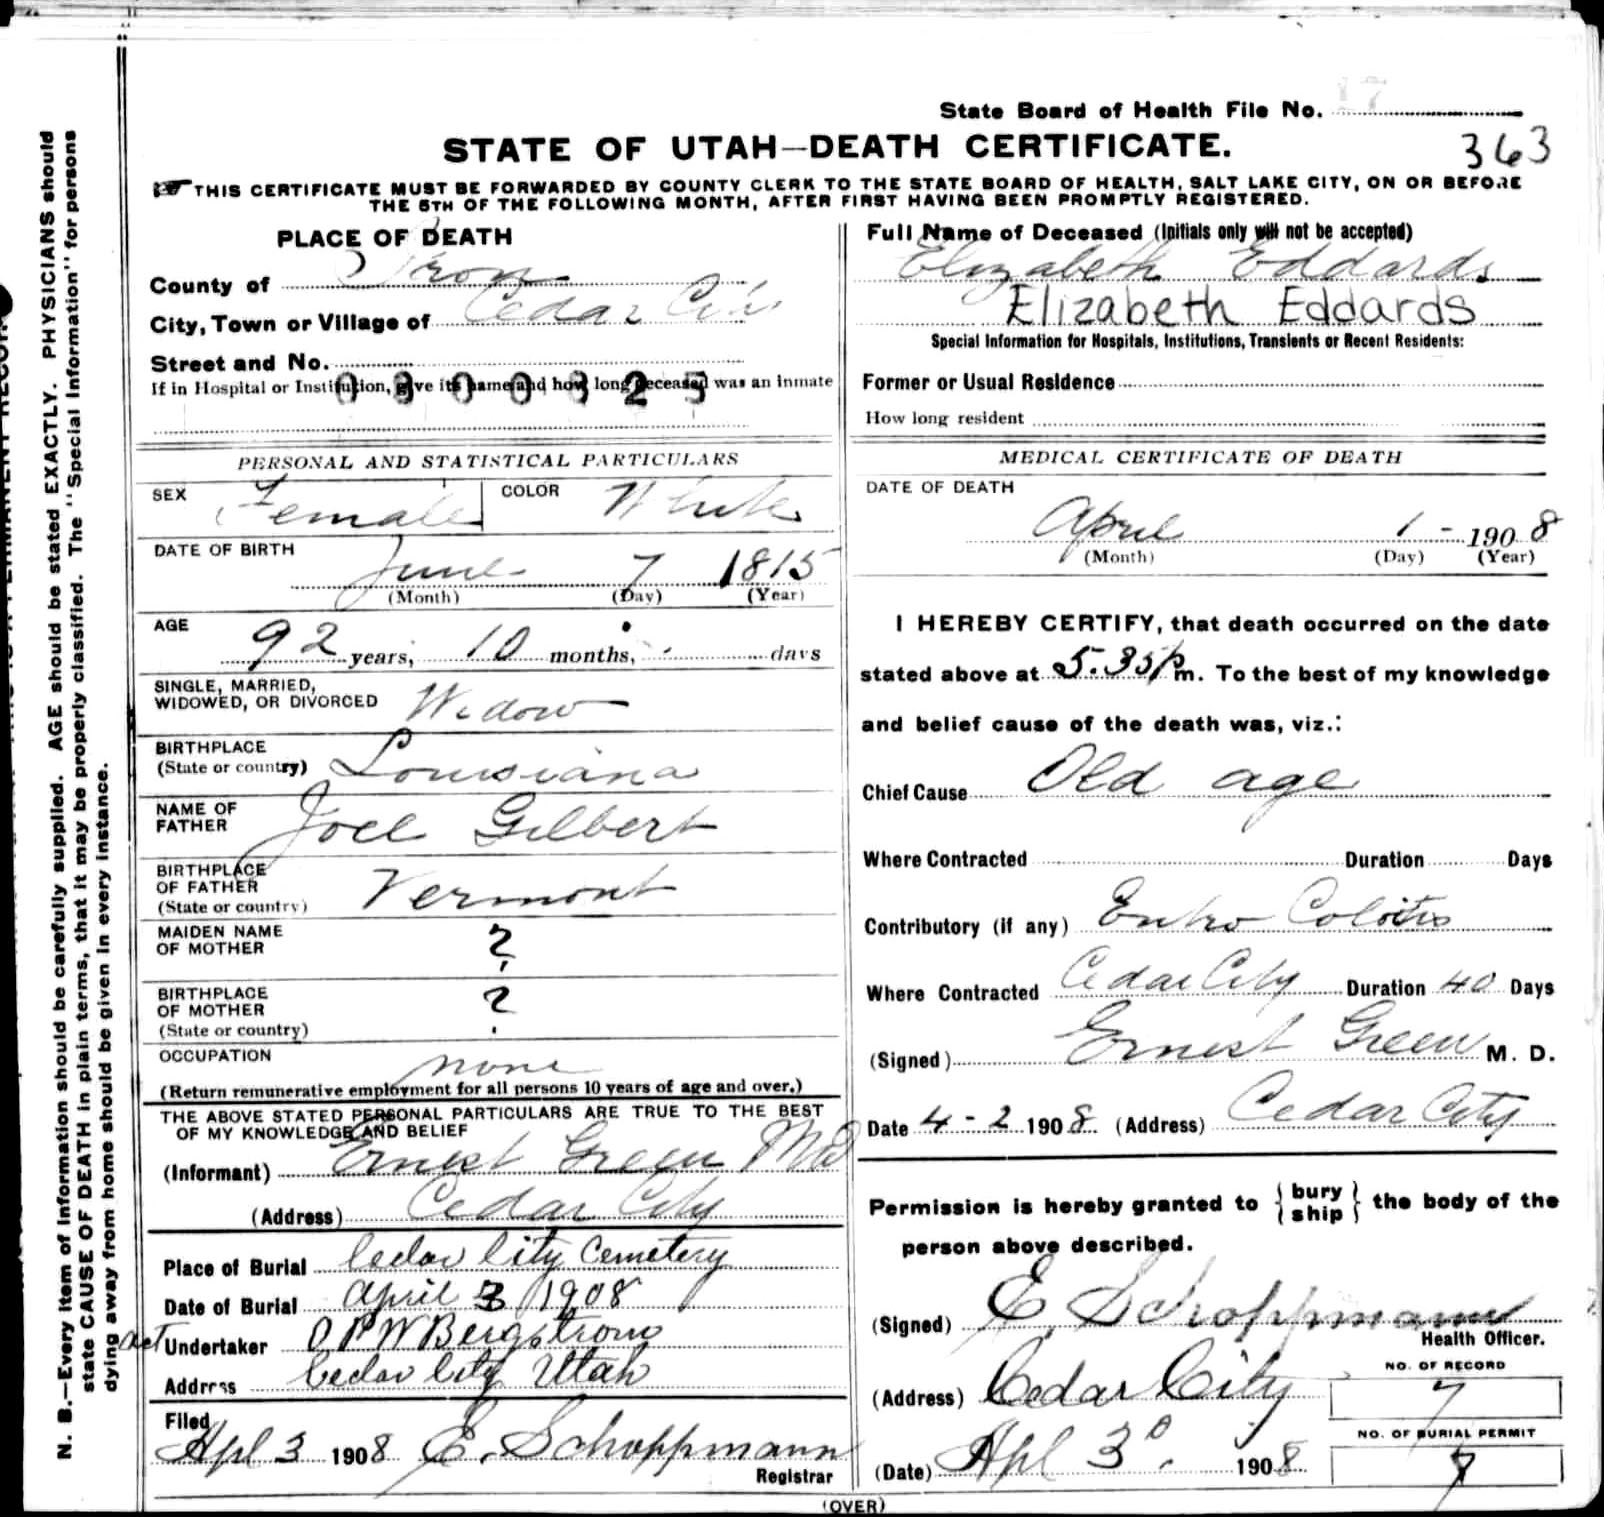 State Board of Health File No. 17
363
STATE OF UTAH—DEATH CERTIFICATE.
THIS CERTIFICATE MUST BE FORWARDED BY COUNTY CLERK TO THE STATE BOARD OF HEALTH, SALT LAKE CITY, ON OR BEFORE
THE 5TH OF THE FOLLOWING MONTH, AFTER FIRST HAVING BEEN PROMPTLY REGISTERED.
PLACE OF DEATH
County of Iron
City, Town or Village of Cedar City
Street and No.
If in Hospital or Institution, give its name and how long deceased was an inmate
0300325
PERSONAL AND STATISTICAL PARTICULARS
SEX Female COLOR White
DATE OF BIRTH
June 7 1815
(Month) (Day) (Year)
AGE
92 years, 10 months, - days
SINGLE, MARRIED,
WIDOWED, OR DIVORCED Widow
BIRTHPLACE
(State or country) Louisiana
NAME OF
FATHER Joel Gilbert
BIRTHPLACE
OF FATHER
(State or country) Vermont
MAIDEN NAME
OF MOTHER ?
BIRTHPLACE
OF MOTHER
(State or country) ?
OCCUPATION none
(Return remunerative employment for all persons 10 years of age and over.)
THE ABOVE STATED PERSONAL PARTICULARS ARE TRUE TO THE BEST
OF MY KNOWLEDGE AND BELIEF
(Informant) Ernest Green MD
(Address) Cedar City
Place of Burial Cedar City Cemetery
Date of Burial April 3 1908
act Undertaker O P W Bergstrom
Address Cedar City Utah
Filed
Apl 3 1908 E. Schoppmann
Registrar
Full Name of Deceased (Initials only will not be accepted)
Elizabeth Eddards
Elizabeth Eddards
Special Information for Hospitals, Institutions, Transients or Recent Residents:
Former or Usual Residence
How long resident
MEDICAL CERTIFICATE OF DEATH
DATE OF DEATH
April 1 - 1908
(Month) (Day) (Year)
I HEREBY CERTIFY, that death occurred on the date
stated above at 5.35 P m. To the best of my knowledge
and belief cause of the death was, viz.:
Chief Cause Old age
Where Contracted Duration Days
Contributory (if any) Entro Colitis
Where Contracted Cedar City Duration 40 Days
(Signed) Ernest Green M. D.
Date 4-2 1908. (Address) Cedar City
Permission is hereby granted to { bury ship } the body of the
person above described.
(Signed) E. Schoppmann
Health Officer.
(Address) Cedar City
(Date) Apl 3d. 1908
NO. OF RECORD
7
NO. OF BURIAL PERMIT
7
(OVER)
N. B.—Every item of information should be carefully supplied. AGE should be stated EXACTLY. PHYSICIANS should
state CAUSE OF DEATH in plain terms, that it may be properly classified. The "Special Information" for persons
dying away from home should be given in every instance.